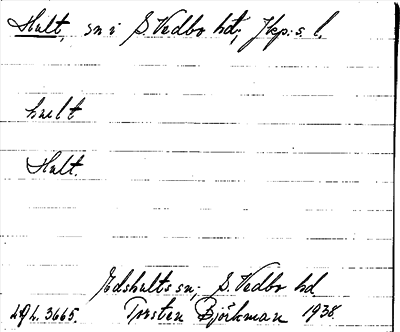 Hult, sn i S. Vedbo hd, Jkp:s l.
hult
Hult.
Edshults sn; S. Vedbo hd
Torsten Björkman 1938.
3665.